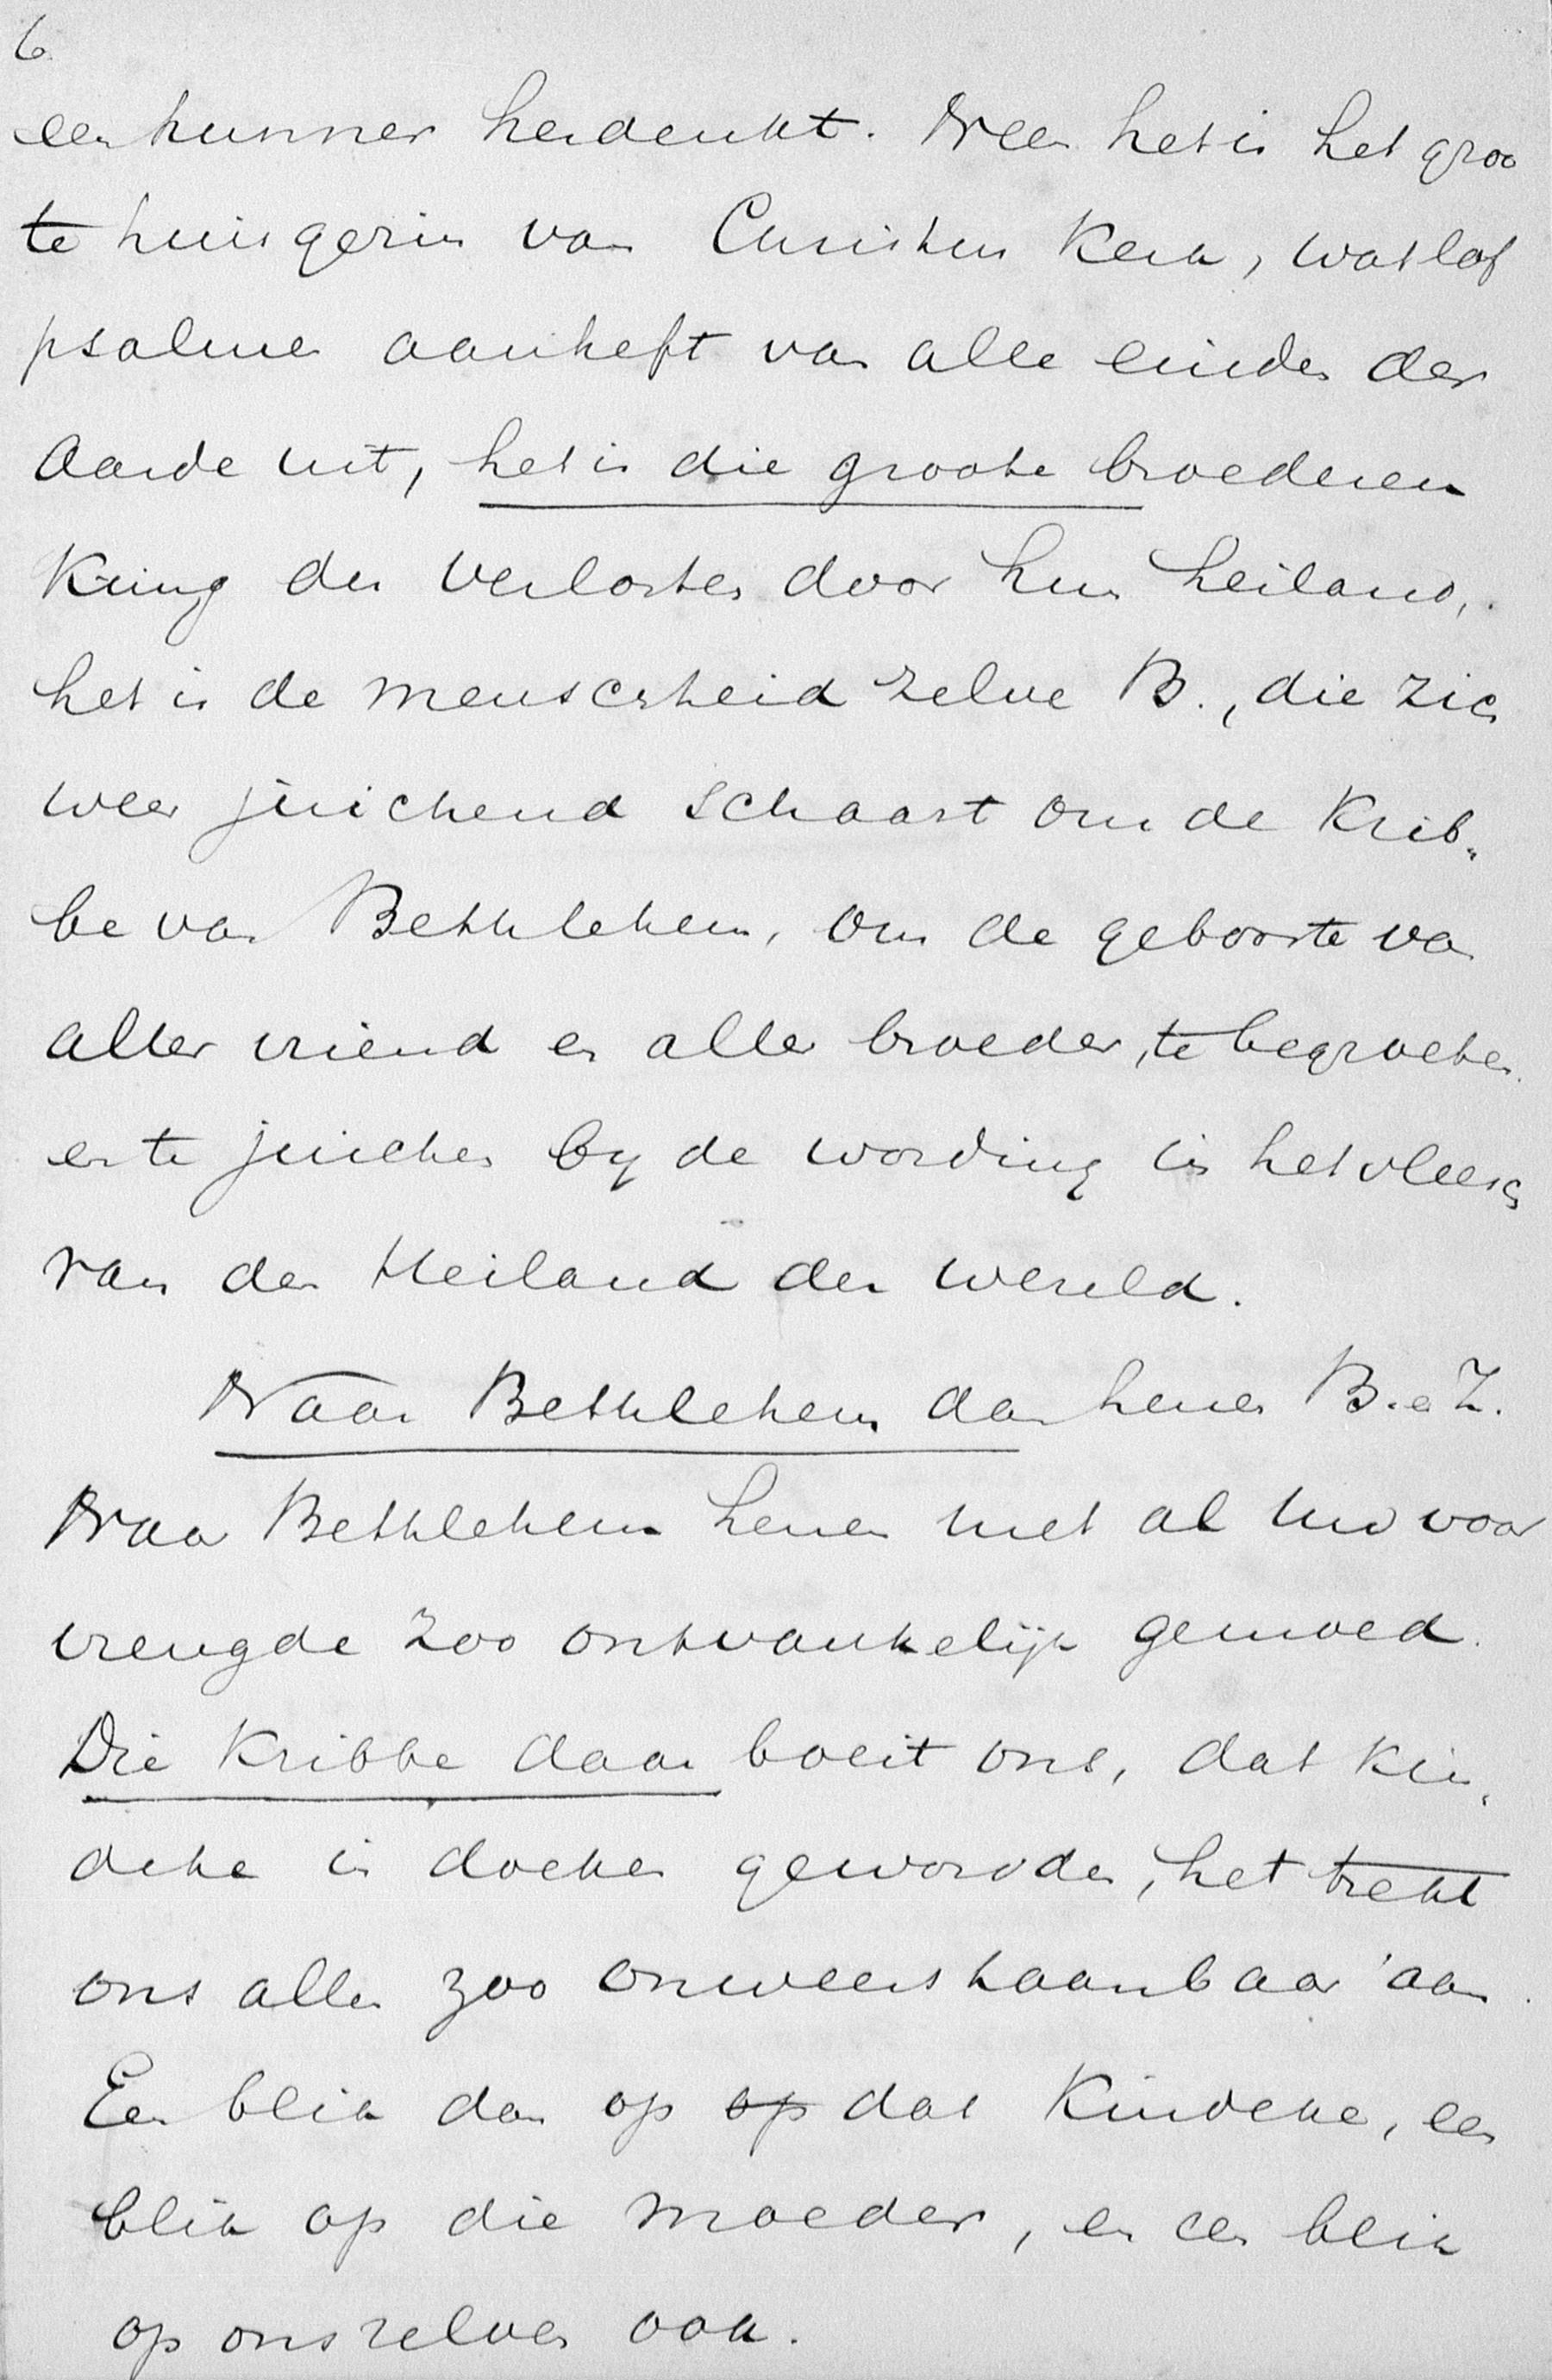 6
een hunner herdenkt. Neen het is het groo
te huisgezin van Christus Kerk, wat lof
psalmen aanheft van alle einden der
Aarde uit, het is die groote broederen
Kring der verlosten door hun heiland,
het is de menscheid zelve B., die zich
weer juichend schaart om de Krib„
be van Bethlehem, om de geboorte van
aller vriend en aller broeder, te begroeten
en te juichen by de wording in het vleesch
van den Heiland der wereld.
Naar Bethlehem dan henen B. e Z.
Naar Bethlehem henen met al uw voor
vreugde zoo ontvankelijk gemoed.
Die Kribbe daar boeit ons, dat kin„
deke in doeken gewonden, het trekt
ons allen zoo onweerstaanbaar aan.
Een blik dan op op dat Kindeke, een
blik op die moeder, en een blik
op ons zelven ook.